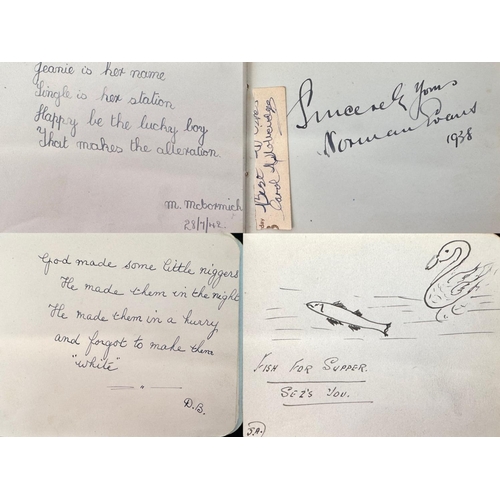 Jeanie is her name
Single is her station
Happy be the lucky boy
That makes the alteration.
M. McCormick
28/7/42.
Best Wishes
Sincerely Yours
Norman Evans
1938
God made some little niggers
He made them in the night
He made them in a hurry
and forgot to make them
"white"
D.B.
FISH FOR SUPPER.
SEZ'S YOU.
J.A.